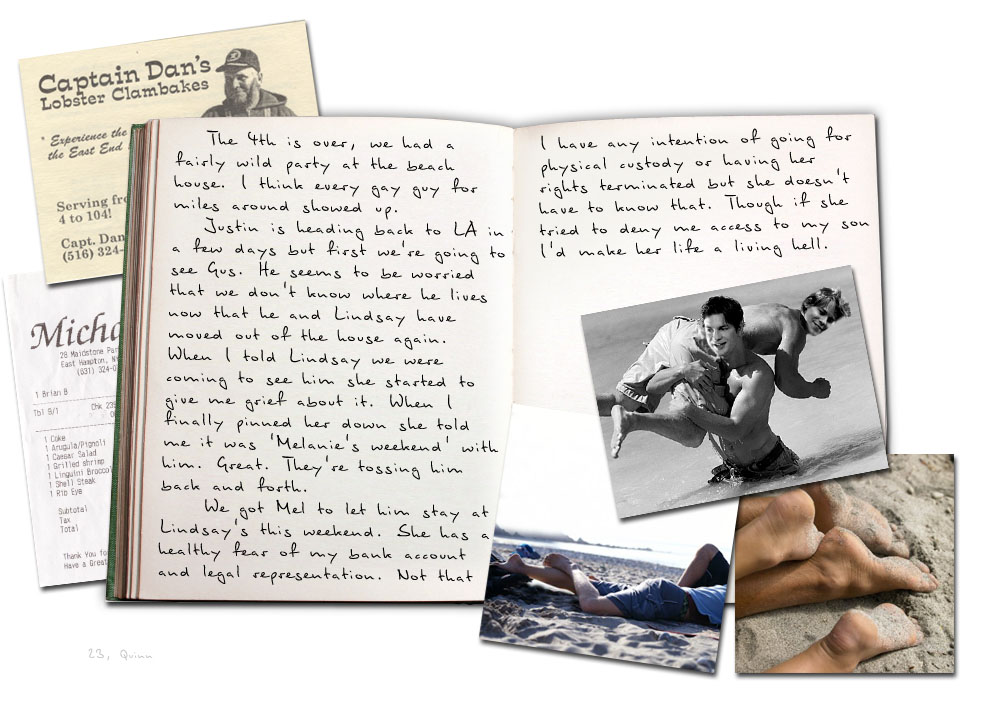 Captain Dan's
Lobster Clambakes
" Experience the
the East End
Serving
4 to 104!
Capt. Dan
(516) 324-
Micha
28 Maidstone
East Hampton,
(631) 324-
1 Brian B
Tbl 9/1 Chk
1 Coke
1 Arugula/Pignoli
1 Caesar Salad
1 Grilled shrimp
1 Linguini
1 Shell Steak
1 Rib Eye
Subtotal
Tax
Total
Thank You
Have a Great
The 4th is over, we had a
fairly wild party at the beach
house. I think every gay guy for
miles around showed up.
Justin is heading back to LA in
a few days but first we're going to
see Gus. He seems to be worried
that we don't know where he lives
now that he and Lindsay have
moved out of the house again.
When I told Lindsay we were
coming to see him she started to
give me grief about it. When I
finally pinned her down she told
me it was 'Melanie's weekend' with
him. Great. They're tossing him
back and forth.
We got Mel to let him stay at
Lindsay's this weekend. She has a
healthy fear of my bank account
and legal representation. Not that
I have any intention of going for
physical custody or having her
rights terminated but she doesn't
have to know that. Though if she
tried to deny me access to my son
I'd make her life a living hell.
23, Quinn